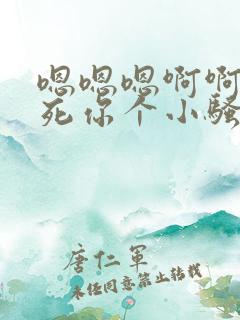 嗯嗯嗯啊啊
死你个小骚
唐仁军
未经同意禁止转载